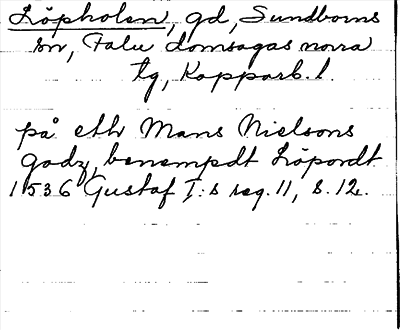 Löpholen, gd, Sundborns
sn, Falu domsagas norra
tg, Kopparb. l.
på eth Mans Nielsons
godz, benempdt Löpordt
1536 Gustaf I:s reg. 11, s. 12.